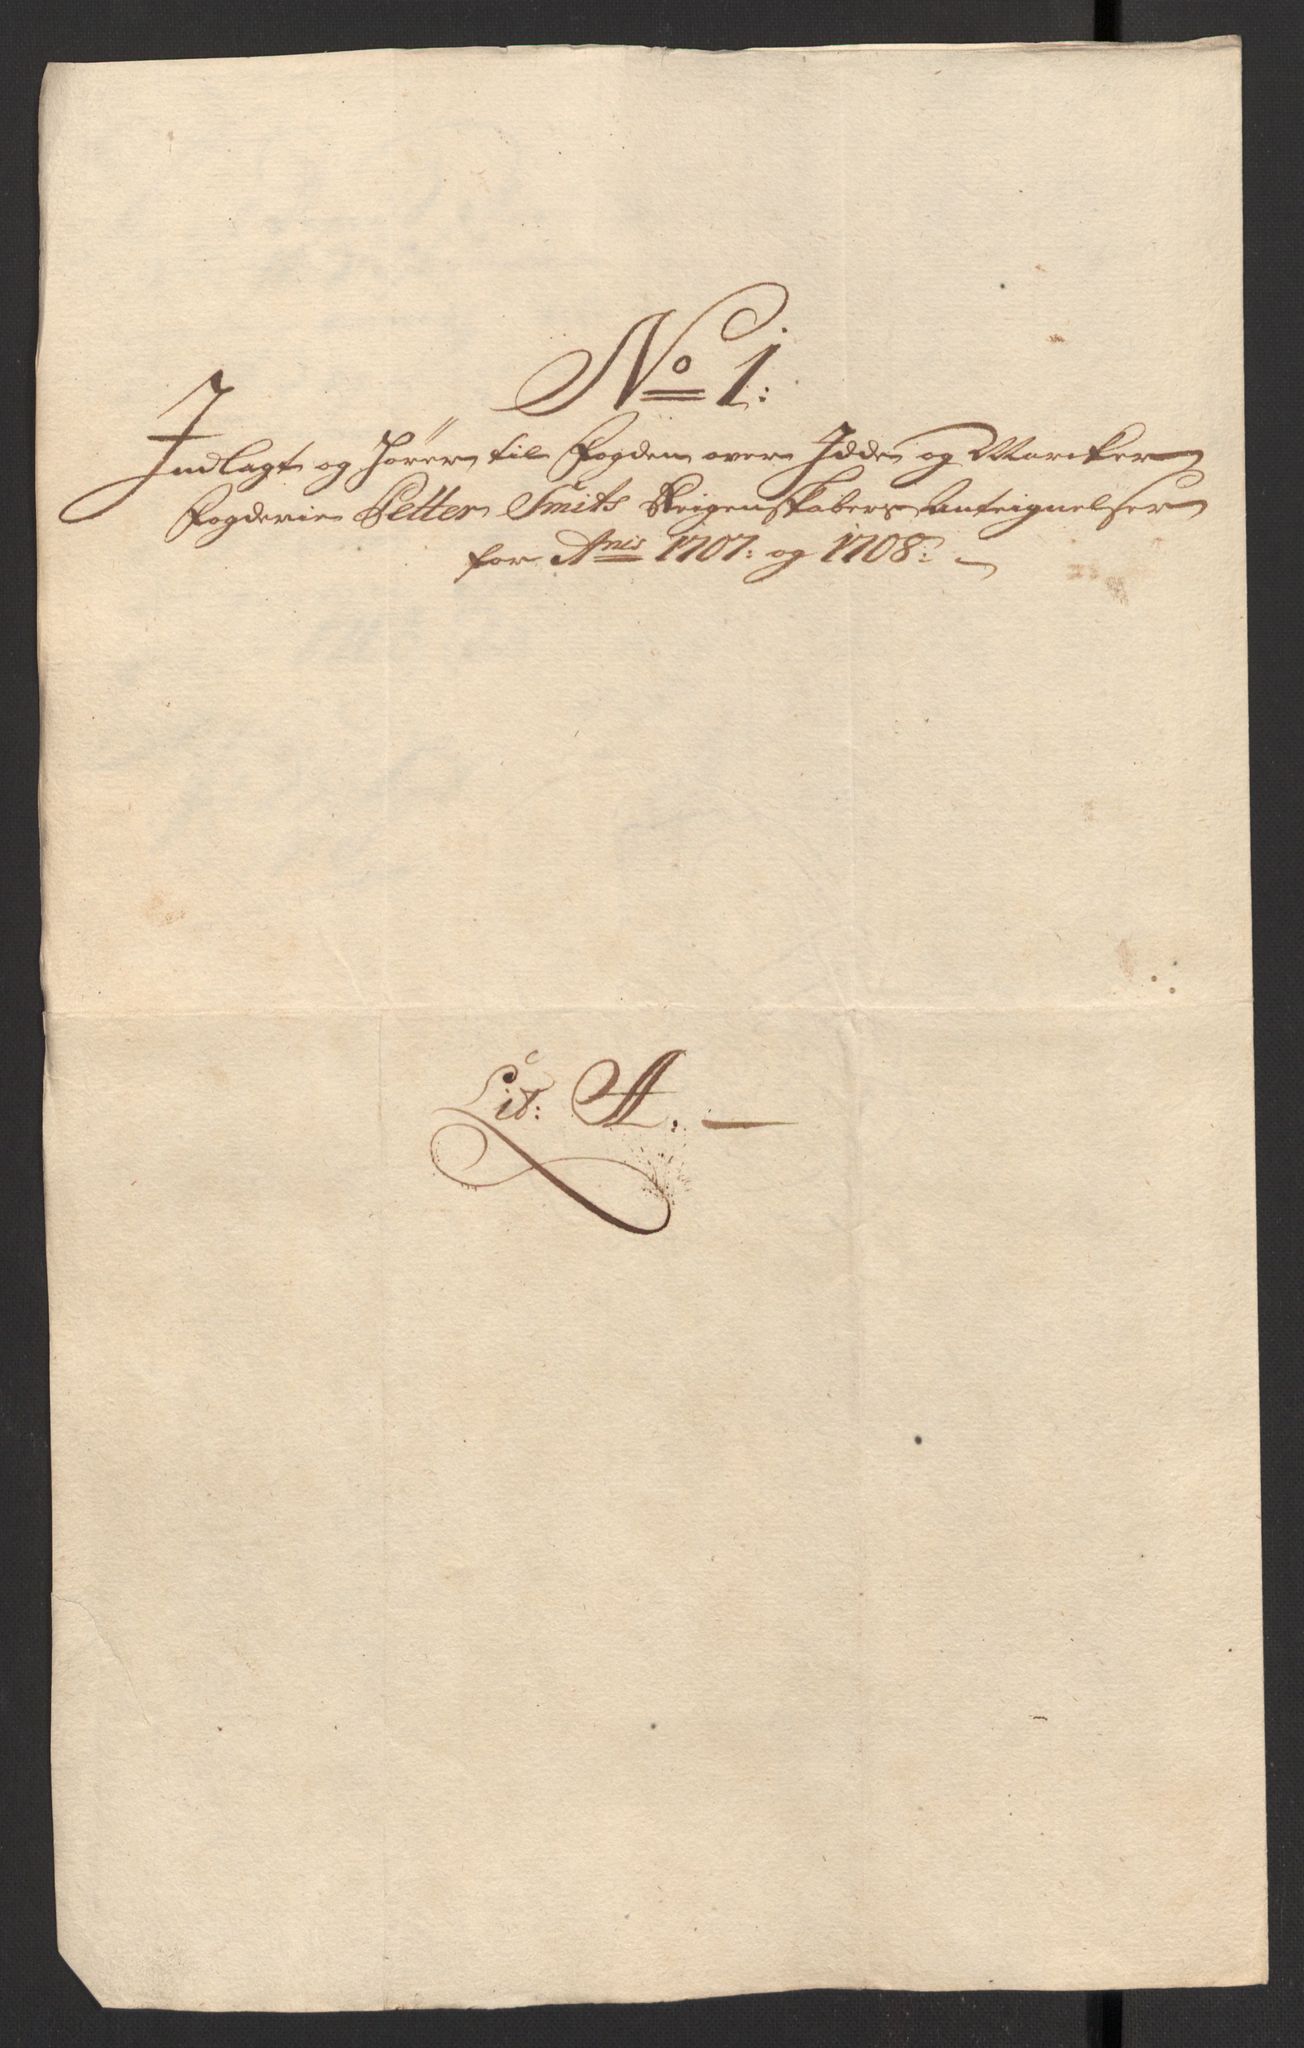 No 1:
Indlagt og hörer til Fogden over Idde og Marcker
Fogderie Petter Smits Reigenskabers Anteignelser
for Anis 1707: og 1708:
Lit: A.